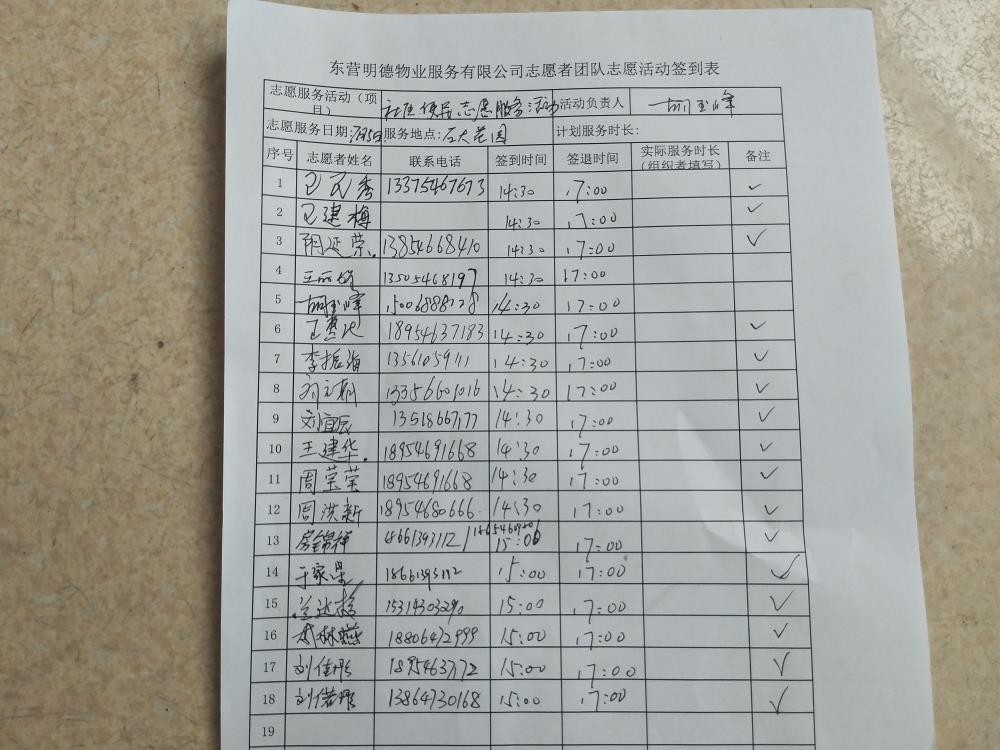 东营明德物业服务有限公司志愿者团队志愿活动签到表
志愿服务活动（项目） 社区便民志愿服务活动 活动负责人 胡玉峰
志愿服务日期: 服务地点: 计划服务时长:
序号 志愿者姓名 联系电话 签到时间 签退时间 实际服务时长（组织者填写） 备注
1 13375467673 14:30 17:00 ✓
2 建梅 14:30 17:00 ✓
3 延荣 13854668410 14:30 17:00 ✓
4 13505468197 14:30 17:00
5 胡玉峰 14:30 17:00
6 18954637183 14:30 17:00 ✓
7 李振海 13561059111 14:30 17:00 ✓
8 13356601016 14:30 17:00 ✓
9 刘宜辰 13518667177 14:30 17:00 ✓
10 王建华 18954691668 14:30 17:00 ✓
11 周莹荣 18954691668 14:30 17:00 ✓
12 周洪新 18954680666 14:30 17:00 ✓
13 15:00 17:00 ✓
14 于家杲 18661393112 15:00 17:00 ✓
15 15314303290 15:00 17:00 ✓
16 林燕 18806472999 15:00 17:00 ✓
17 刘佳彤 18954637172 15:00 17:00 ✓
18 13864730168 15:00 17:00 ✓
19